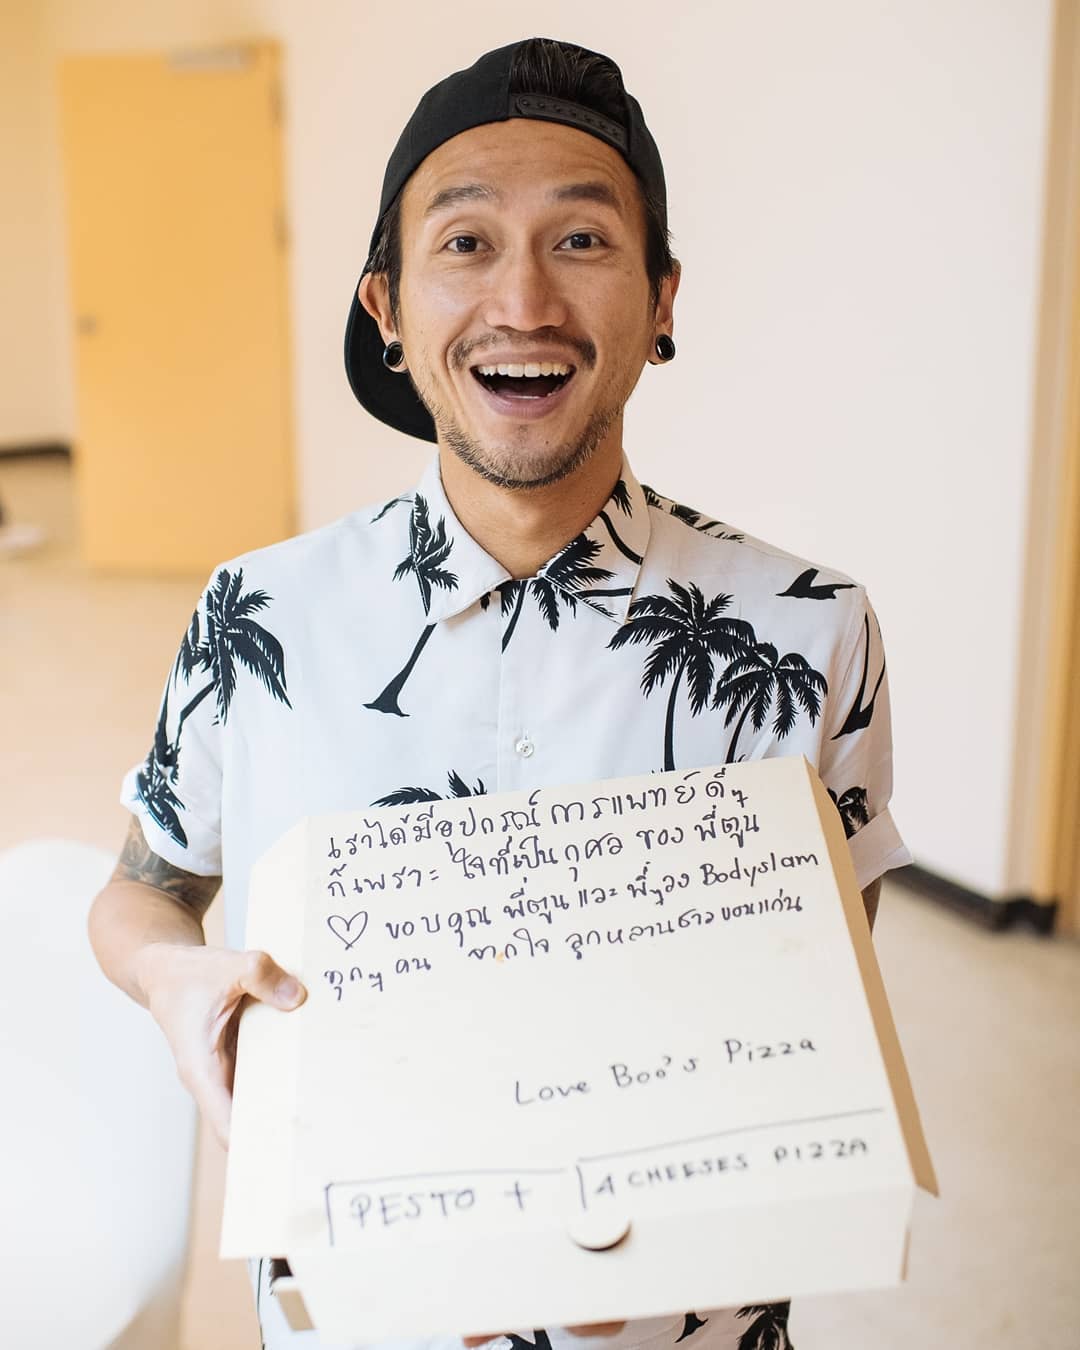 เราได้มีอุปกรณ์ การแพทย์ ดีๆ
ก็เพราะ ใจที่เป็นกุศล ของ พี่ตูน
♡ ขอบคุณ พี่ตูน และ พี่ๆวง Bodyslam
ทุกๆ คน จากใจ ลูกหลานชาวขอนแก่น
Love Boo's Pizza
PESTO + 4 CHEESES PIZZA